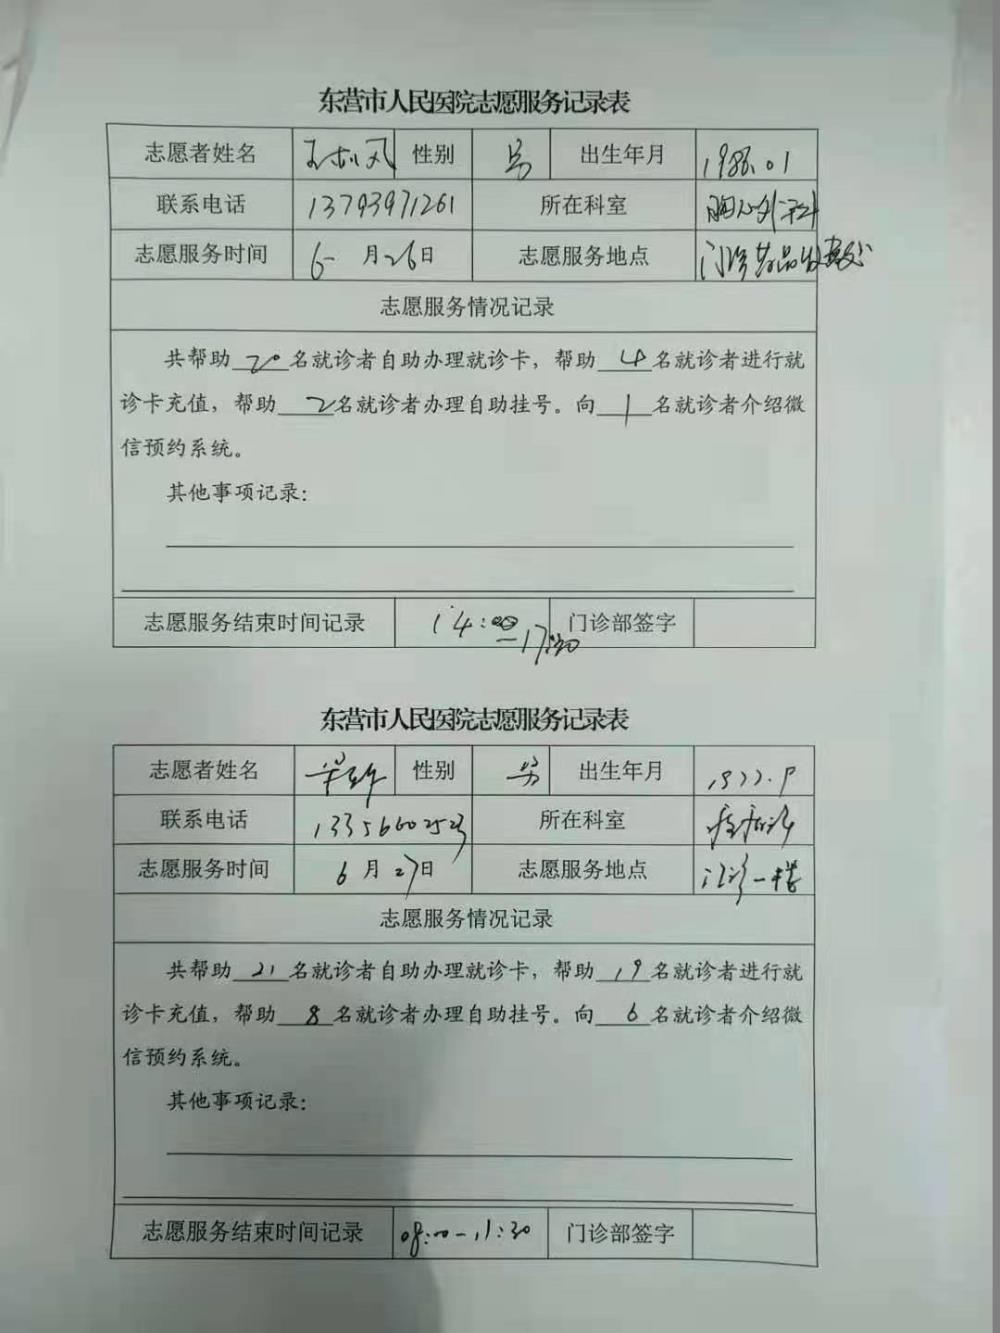 东营市人民医院志愿服务记录表
志愿者姓名 性别 男 出生年月 1988.01
联系电话 13793971261 所在科室 胸心外科
志愿服务时间 6 月26日 志愿服务地点 门诊药品发
志愿服务情况记录
共帮助 20 名就诊者自助办理就诊卡，帮助 4 名就诊者进行就
诊卡充值，帮助 2 名就诊者办理自助挂号。向 1 名就诊者介绍微
信预约系统。
其他事项记录：
志愿服务结束时间记录 14:00 门诊部签字
—17:30
东营市人民医院志愿服务记录表
志愿者姓名 性别 男 出生年月 1977.9
联系电话 13356602523 所在科室
志愿服务时间 6 月27日 志愿服务地点 门诊一楼
志愿服务情况记录
共帮助 21 名就诊者自助办理就诊卡，帮助 19 名就诊者进行就
诊卡充值，帮助 8 名就诊者办理自助挂号。向 6 名就诊者介绍微
信预约系统。
其他事项记录：
志愿服务结束时间记录 08:00-11:30 门诊部签字